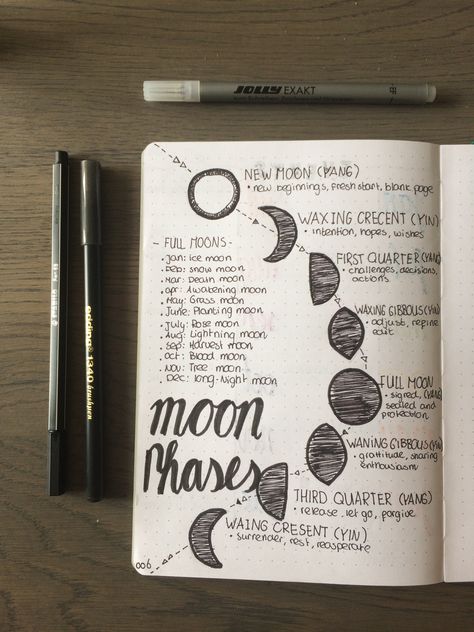 JOLLY EXAKT
NEW MOON (YANG)
• new beginnings, fresh start, blank page
WAXING CRECENT (YIN)
• intention, hopes, wishes
- FULL MOONS -
• Jan: ice moon
• Feb: snow moon
• Mar: Death moon
• Apr: Awatening moon
• May: Grass moon
• June: Planting moon
• July: Rose moon
• Aug: Lightning moon
• Sep: Harvest moon
• Oct: Blood moon
• Nov: Tree moon
• Dec: Long-Night moon
FIRST QUARTER (YANG)
• challenges, decisions,
actions
WAXING GIBBOUS (YIN)
• adjust, refine
edit
FULL MOON
(YANG)
• signed,
sealed and
protection
moon
Phases
WANING GIBBOUS (YIN)
• grattitude, sharing
enthousiasm
THIRD QUARTER (YANG)
• release, let go, forgive
WAING CRESENT (YIN)
• surrender, rest, recuperate
006
edding 1340 brushpen